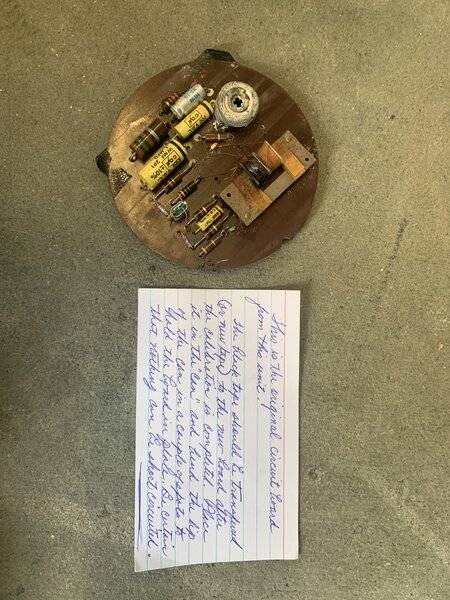 This is the original circuit board
from this unit.
The tape should be transfered
(or new tape) to the new board after
the calibration is completed. Place
it in the "can" and bend the lip
of the can in a couple of spots to
hold the board in place. Be certain
that nothing can be short circuited.
±10%